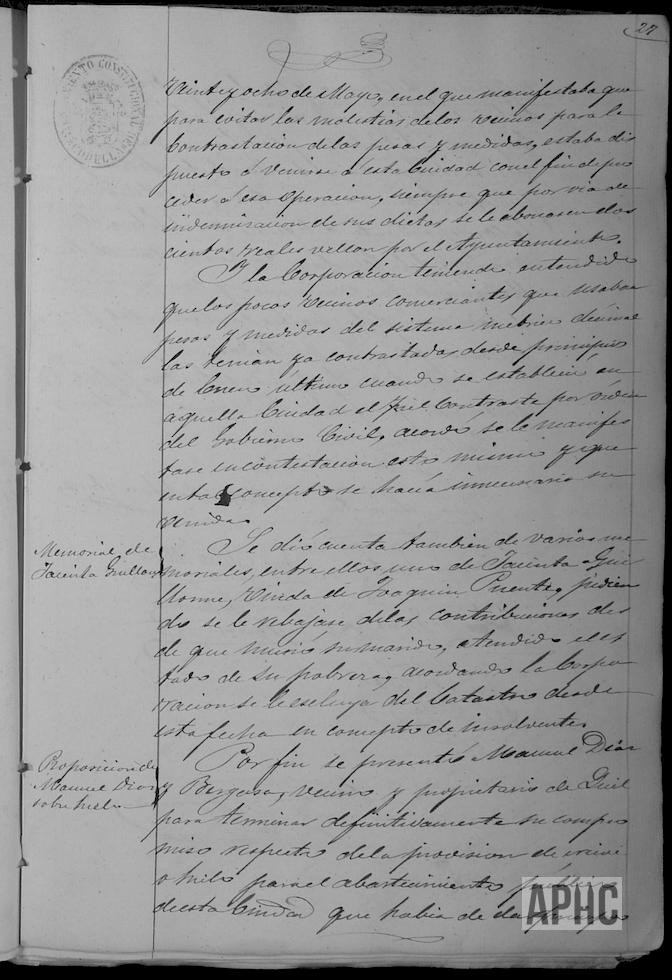 27
Veinte y ocho de Mayo, en el que manifestaba que
para evitar las molestias de los vecinos para la
Contrastacion de las pesas y medidas, estaba dis
puesto á venirse á ésta Ciudad con el fin de pro
ceder á esa operacion, siempre que por via de
indemnizacion de sus dietas se le abonasen dos
cientos reales vellon por el Ayuntamiento.
Y la Corporacion teniendo entendido
que los pocos vecinos comerciantes que usaban
pesas y medidas del sistema metrico decimal
las tenian ya contrastadas desde principios
de Enero último cuando se estableció en
aquella Ciudad el Fiel Contraste por órden
del Gobierno Civil, acordó se le manifes
tase en contestacion esto mismo y que
en tal concepto se hacía innecesaria su
venida.
Memorial de
Jacinta Guillon
Se dió cuenta tambien de varios me
moriales, entre ellos uno de Jacinta Gui
llonne, Viuda de Joaquin Puente, pidien
do se le rebajase de las contribuciones des
de que murió su marido, atendido el es
tado de su pobreza, acordando la Corpo
racion se le escluya del Catastro desde
esta fecha en concepto de insolvente.
Proposicion de
Manuel Dioz
sobre hielo
Por fin se presentó Manuel Dioz
y Bergasa, vecino y propietario de
para terminar definitivamente su compro
miso respecto de la provision de nieve
o hielo para el abastecimiento publico
de esta Ciudad que habia de dar
APHC